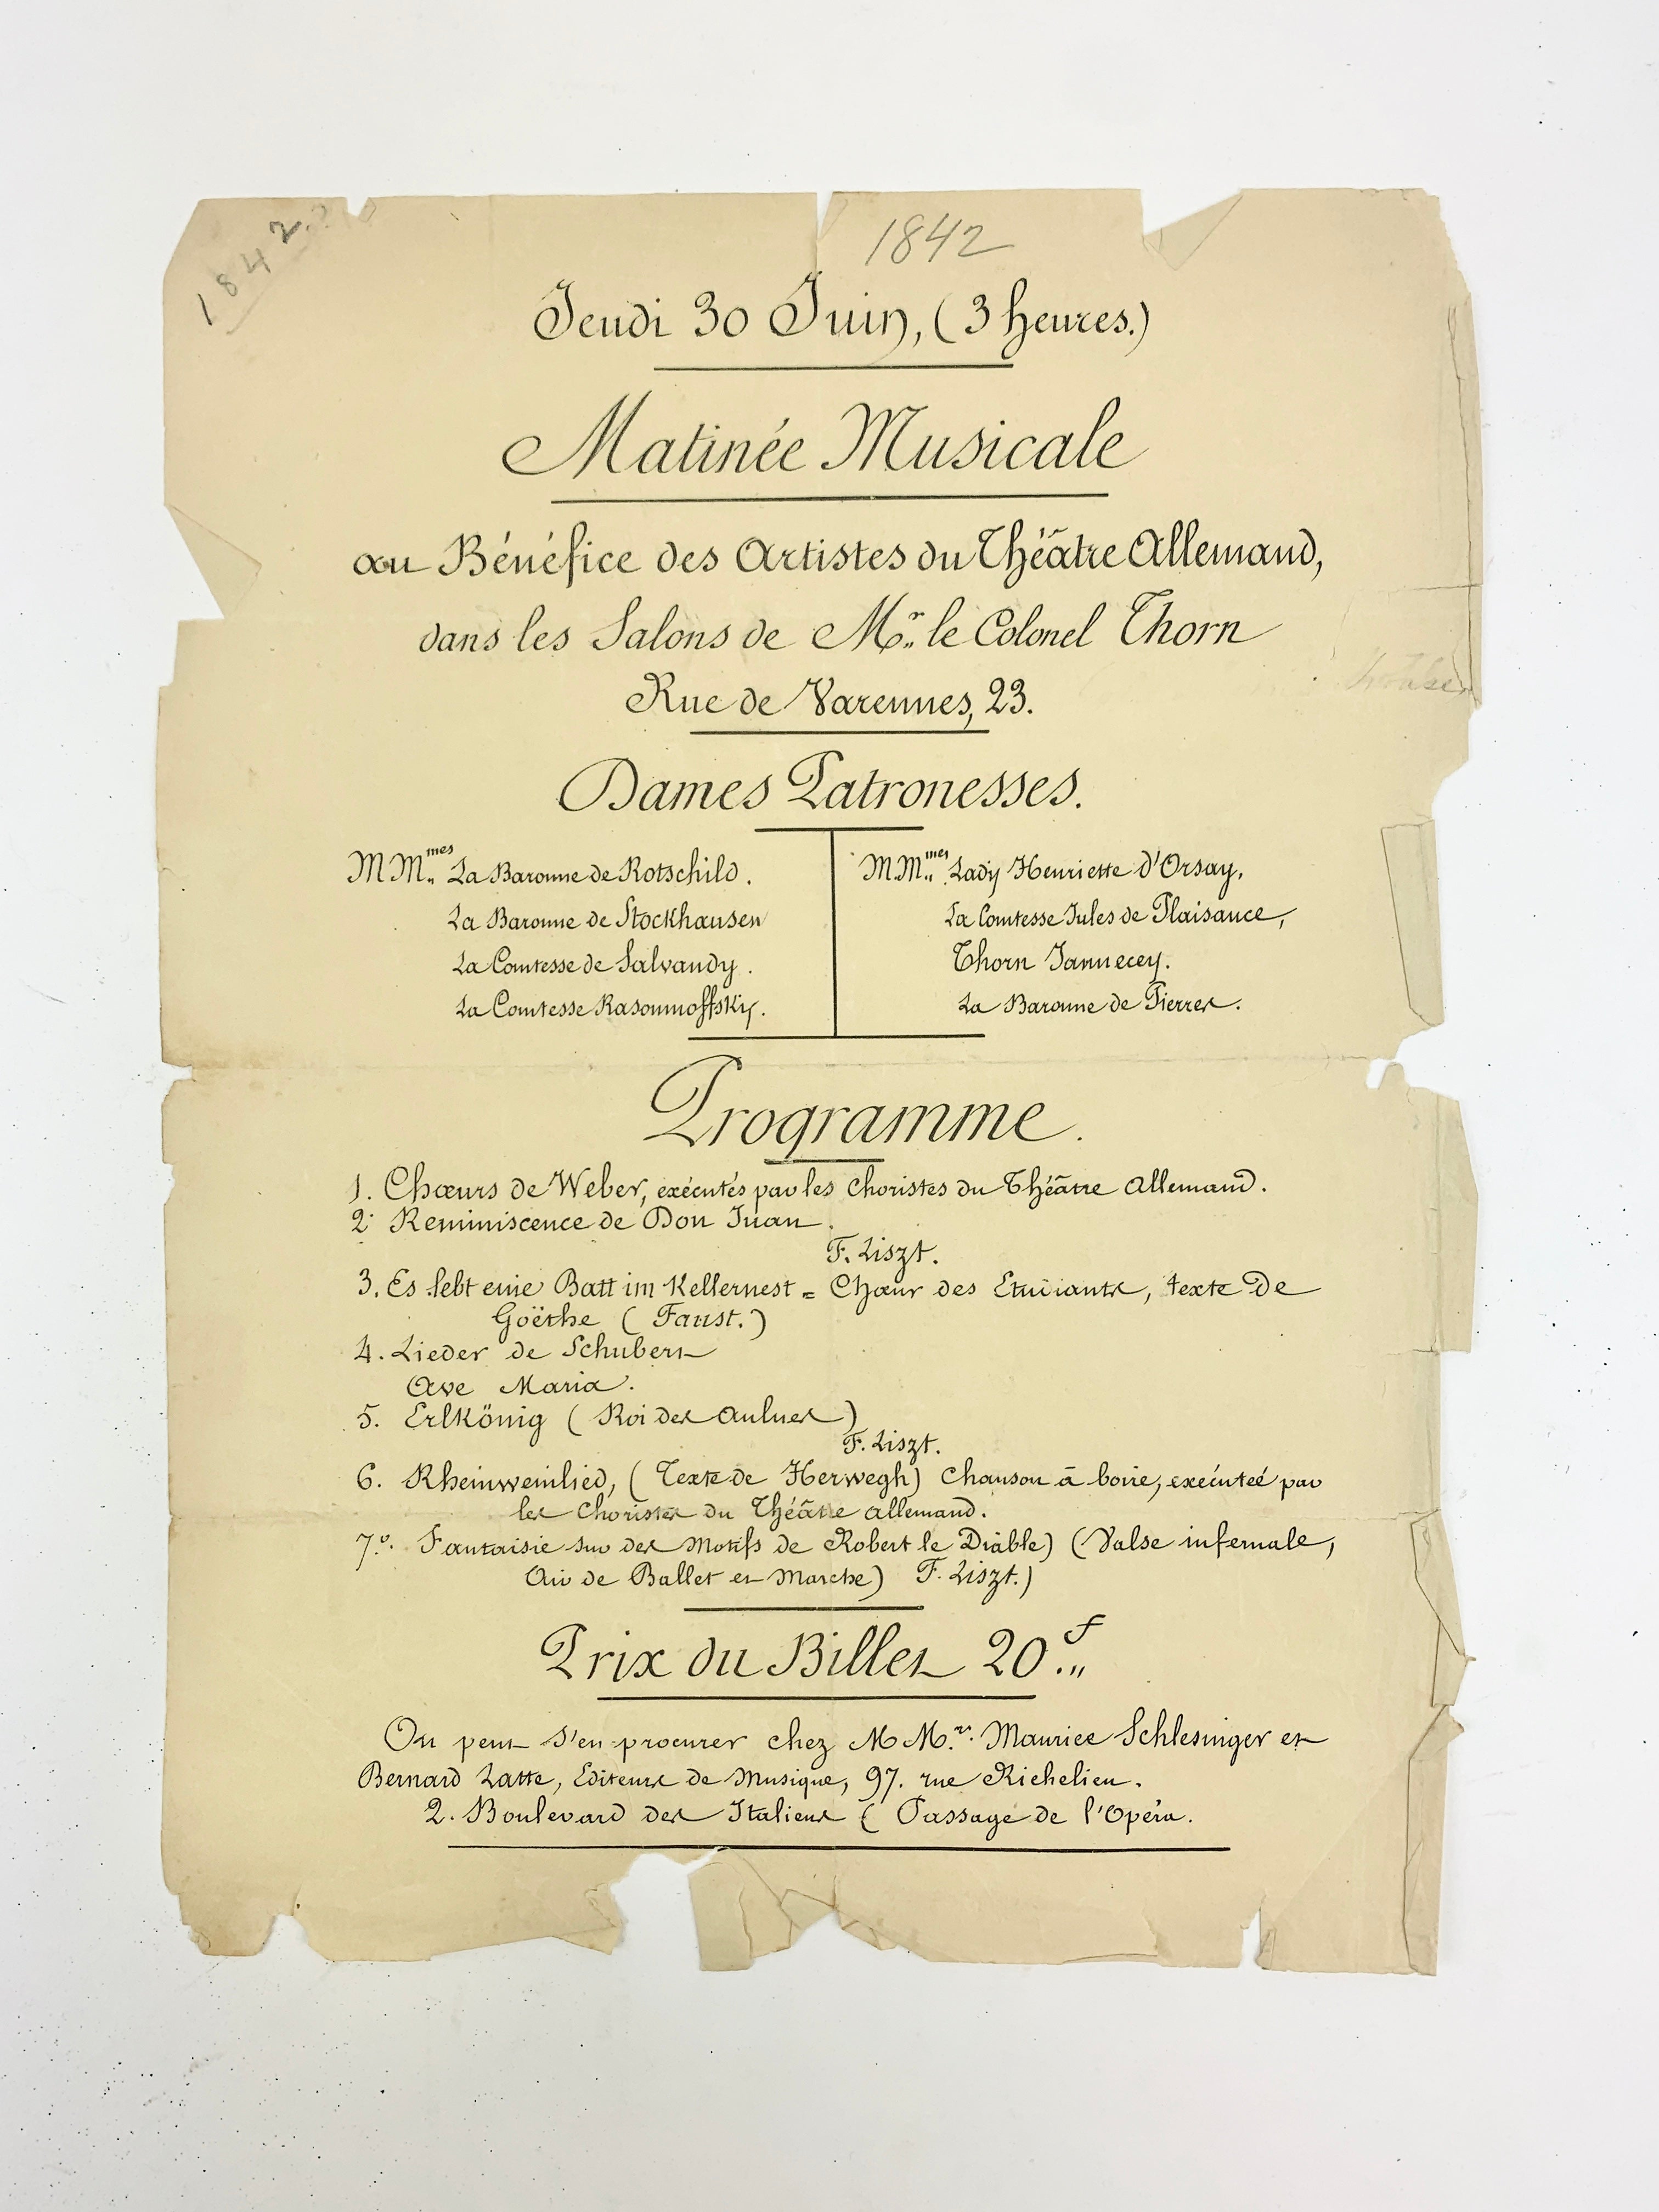 1842
1842.
Jeudi 30 Juin, (3 heures.)
Matinée Musicale
au Bénéfice des Artistes du Théâtre Allemand,
dans les Salons de Mr. le Colonel Thorn
Rue de Varennes, 23.
Dames Patronesses.
MM.mes La Baronne de Rotschild.
La Baronne de Stockhausen
La Comtesse de Salvandy.
La Comtesse Rasoumoffsky.
MM.mes Lady Henriette d'Orsay,
La Comtesse Jules de Plaisance,
Thorn Jannecey.
La Baronne de Pierres.
Programme.
1. Chœurs de Weber, exécutés par les Choristes du Théâtre Allemand.
2. Reminiscence de Don Juan.
F. Liszt.
3. Es lebt eine Batt im Kellernest = Chœur des Etudiants, texte de
Goëthe (Faust.)
4. Lieder de Schubert
Ave Maria.
5. Erlkönig (Roi des Aulnes)
F. Liszt.
6. Rheinweinlied, (Texte de Herwegh) Chanson à boire, exécuteé par
les Choristes du Théâtre Allemand.
7º. Fantaisie sur des Motifs de Robert le Diable) (Valse infernale,
Air de Ballet et Marche) F. Liszt.)
Prix du Billet 20.f
On peut s'en procurer chez MM.rs Maurice Schlesinger et
Bernard Latte, Editeurs de Musique, 97. rue Richelieu.
2. Boulevard des Italiens (Passage de l'Opéra.